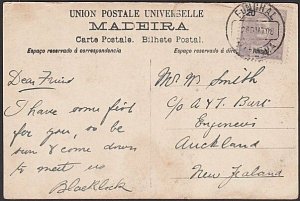 UNION POSTALE UNIVERSELLE
MADEIRA
Carte Postale. Bilhete Postal.
Espaço reservado á correspondencia
Espaço reservado á
FUNCHAL
Dear Friend
I have some fish
for you, so be
sure & come down
to meet us
Blacklock
Mr W Smith
C/o A & T Burt
Engineers
Auckland
New Zealand